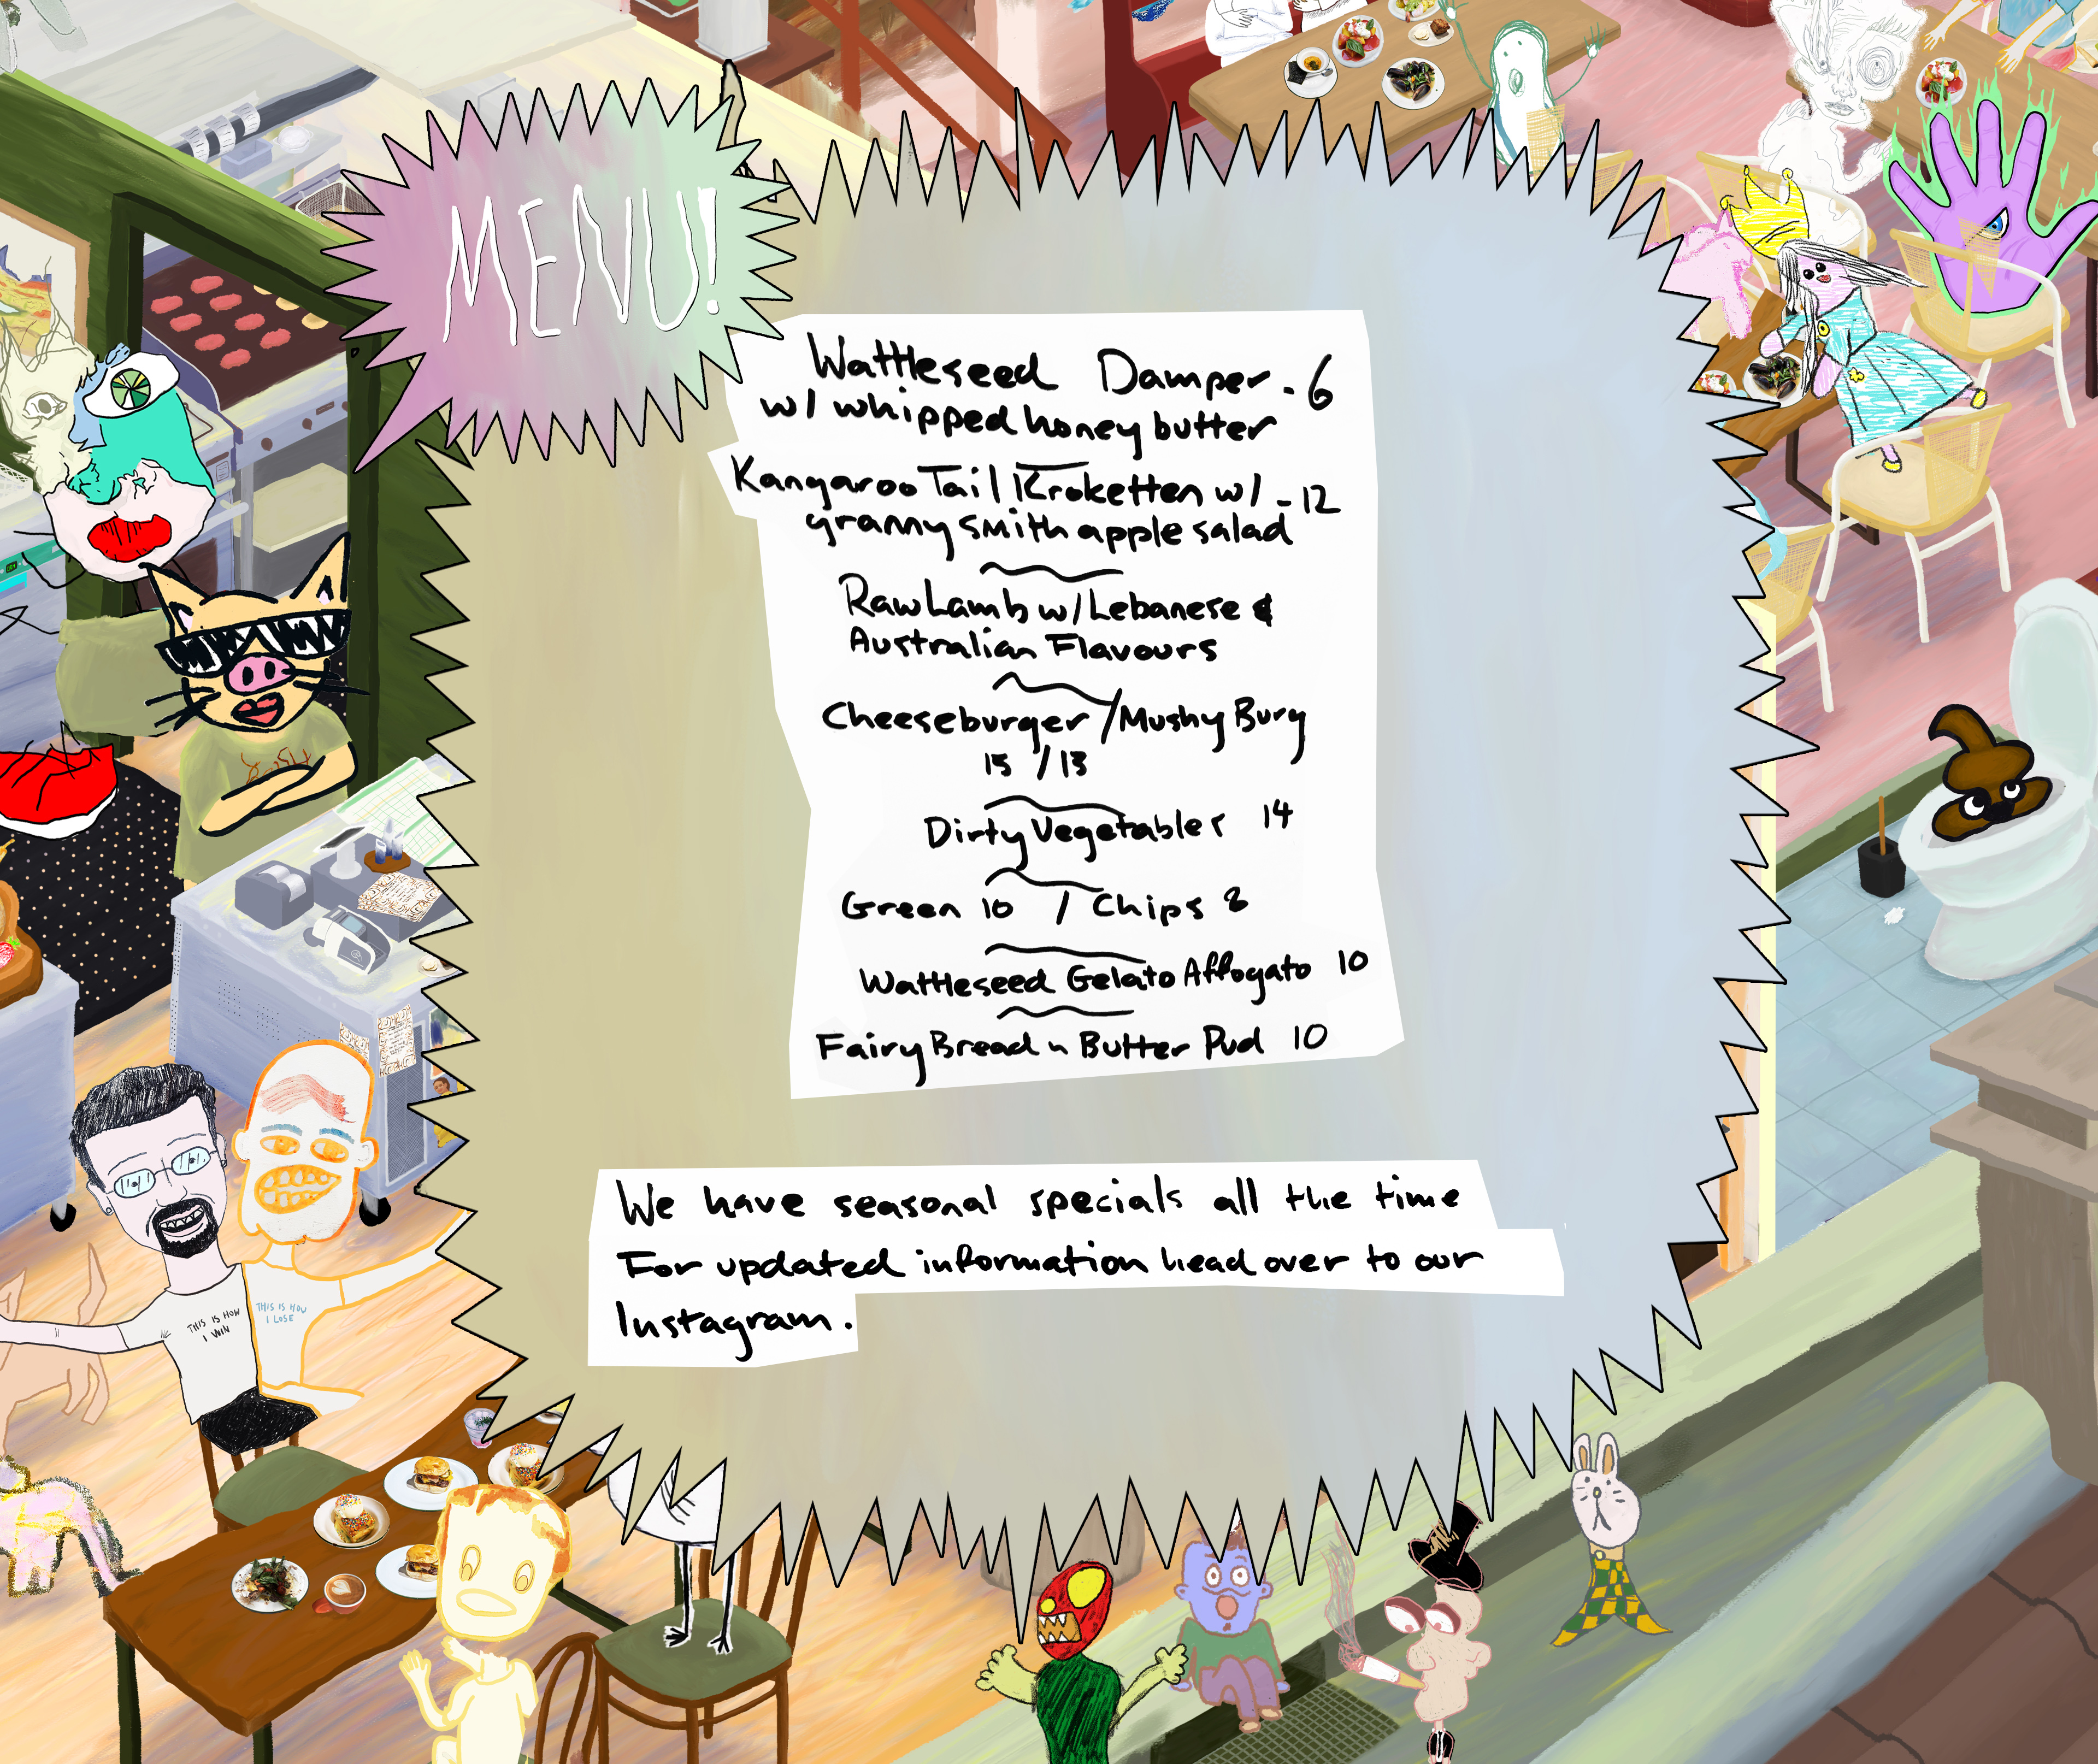 MENU!
Wattleseed Damper - 6
w/ whipped honey butter
Kangaroo Tail Kroketten w/ - 12
granny smith apple salad
Raw Lamb w/ Lebanese &
Australian Flavours
Cheeseburger / Mushy Burg
15 / 13
Dirty Vegetables 14
Green 10 / Chips 8
Wattleseed Gelato Affogato 10
Fairy Bread n Butter Pud 10
We have seasonal specials all the time
For updated information head over to our
Instagram.
THIS IS HOW
I WIN
THIS IS HOW
I LOSE